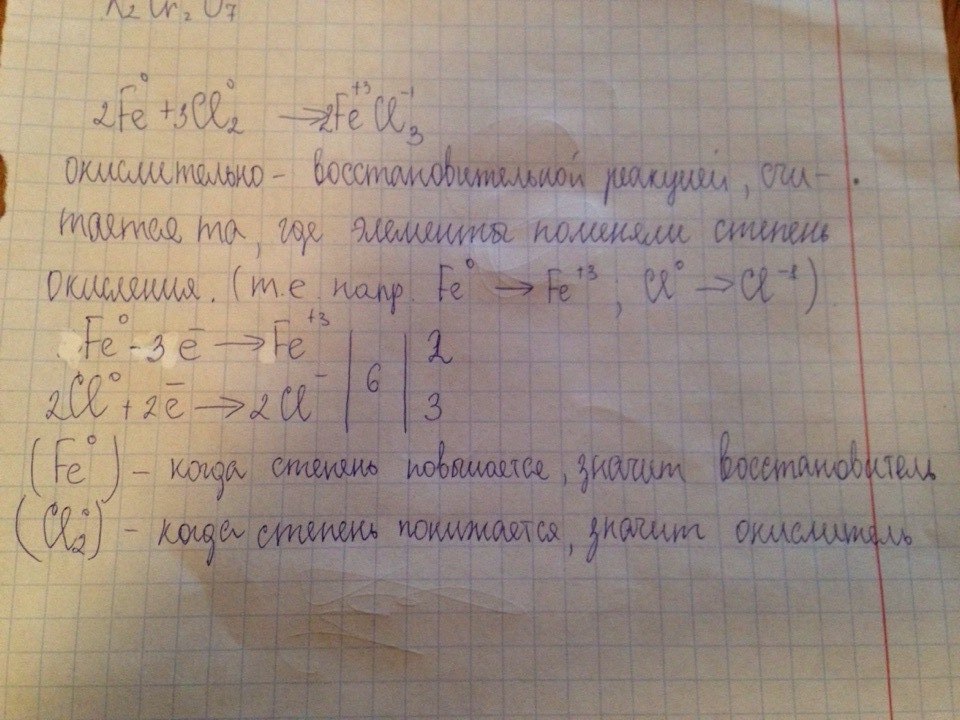 K₂Cr₂O₇
2Fe⁰ + 3Cl₂⁰ → 2Fe⁺³Cl₃⁻¹
окислительно - восстановительной реакцией, счи-
тается та, где элементы поменяли степень
окисления. (т.е. напр. Fe⁰ → Fe⁺³ ; Cl⁰ → Cl⁻¹)
Fe⁰ - 3ē → Fe⁺³ | 6 | 2
2Cl⁰ + 2ē → 2Cl⁻ | | 3
(Fe⁰) - когда степень повышается, значит восстановитель
(Cl₂⁰) - когда степень понижается, значит окислитель